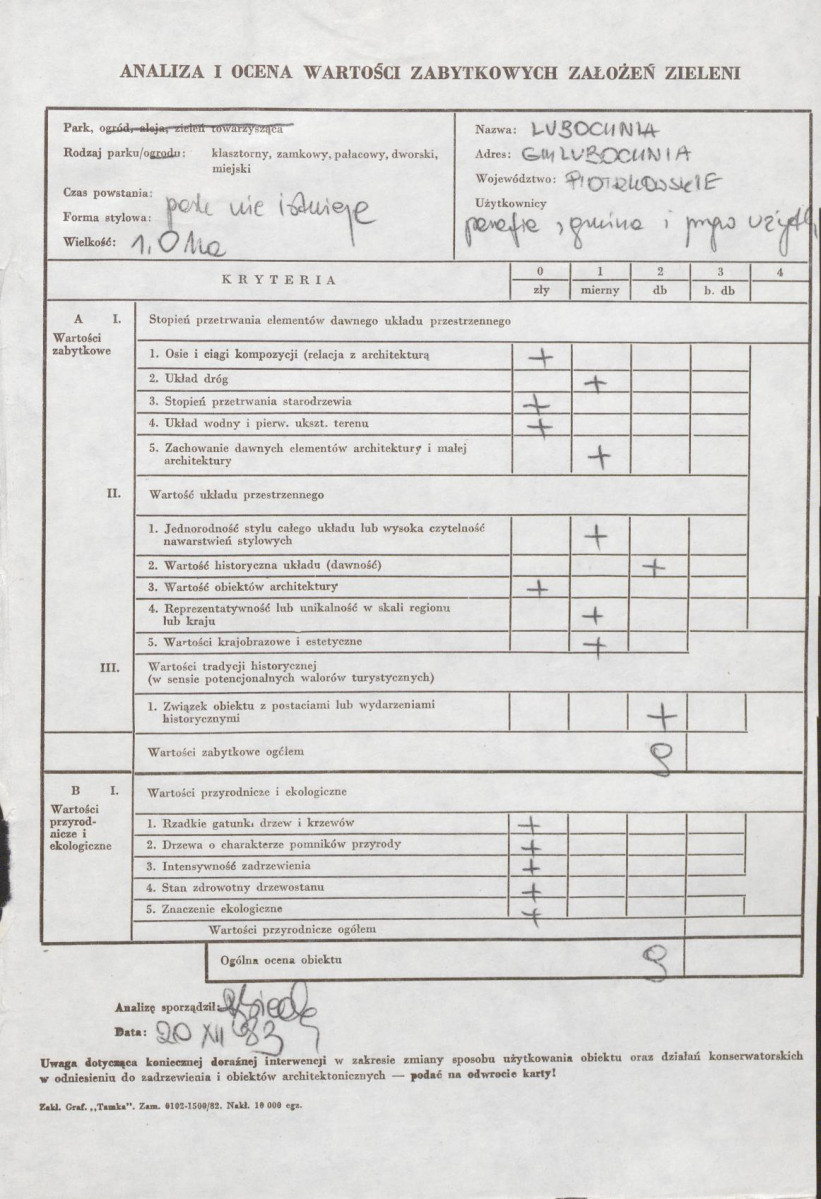 ANALIZA I OCENA WARTOŚCI ZABYTKOWYCH ZAŁOŻEŃ ZIELENI
Park, ogród, aleja, zieleń towarzysząca
Rodzaj parku/ogrodu: klasztorny, zamkowy, pałacowy, dworski,
miejski
Czas powstania:
park nie istnieje
Forma stylowa:
Wielkość: 1,0 ha
Nazwa: LUBOCHNIA
Adres: GM LUBOCHNIA
Województwo: PIOTRKOWSKIE
Użytkownicy
parafia, gmina i użytk
KRYTERIA
0 1 2 3 4
zły mierny db b. db
A I. Stopień przetrwania elementów dawnego układu przestrzennego
Wartości
zabytkowe
1. Osie i ciągi kompozycji (relacja z architekturą +
2. Układ dróg +
3. Stopień przetrwania starodrzewia +
4. Układ wodny i pierw. ukszt. terenu +
5. Zachowanie dawnych elementów architektury i małej
architektury +
II. Wartość układu przestrzennego
1. Jednorodność stylu całego układu lub wysoka czytelność
nawarstwień stylowych +
2. Wartość historyczna układu (dawność) +
3. Wartość obiektów architektury +
4. Reprezentatywność lub unikalność w skali regionu
lub kraju +
5. Wartości krajobrazowe i estetyczne +
III. Wartości tradycji historycznej
(w sensie potencjonalnych walorów turystycznych)
1. Związek obiektu z postaciami lub wydarzeniami
historycznymi +
Wartości zabytkowe ogółem 9
B I. Wartości przyrodnicze i ekologiczne
Wartości
przyrod-
nicze i
ekologiczne
1. Rzadkie gatunki drzew i krzewów +
2. Drzewa o charakterze pomników przyrody +
3. Intensywność zadrzewienia +
4. Stan zdrowotny drzewostanu +
5. Znaczenie ekologiczne +
Wartości przyrodnicze ogółem
Ogólna ocena obiektu 9
Analizę sporządził:
Data: 20 XII 83
Uwaga dotycząca koniecznej doraźnej interwencji w zakresie zmiany sposobu użytkowania obiektu oraz działań konserwatorskich
w odniesieniu do zadrzewienia i obiektów architektonicznych — podać na odwrocie karty!
Zakł. Graf. „Tamka". Zam. 0102-1500/82. Nakł. 10 000 egz.